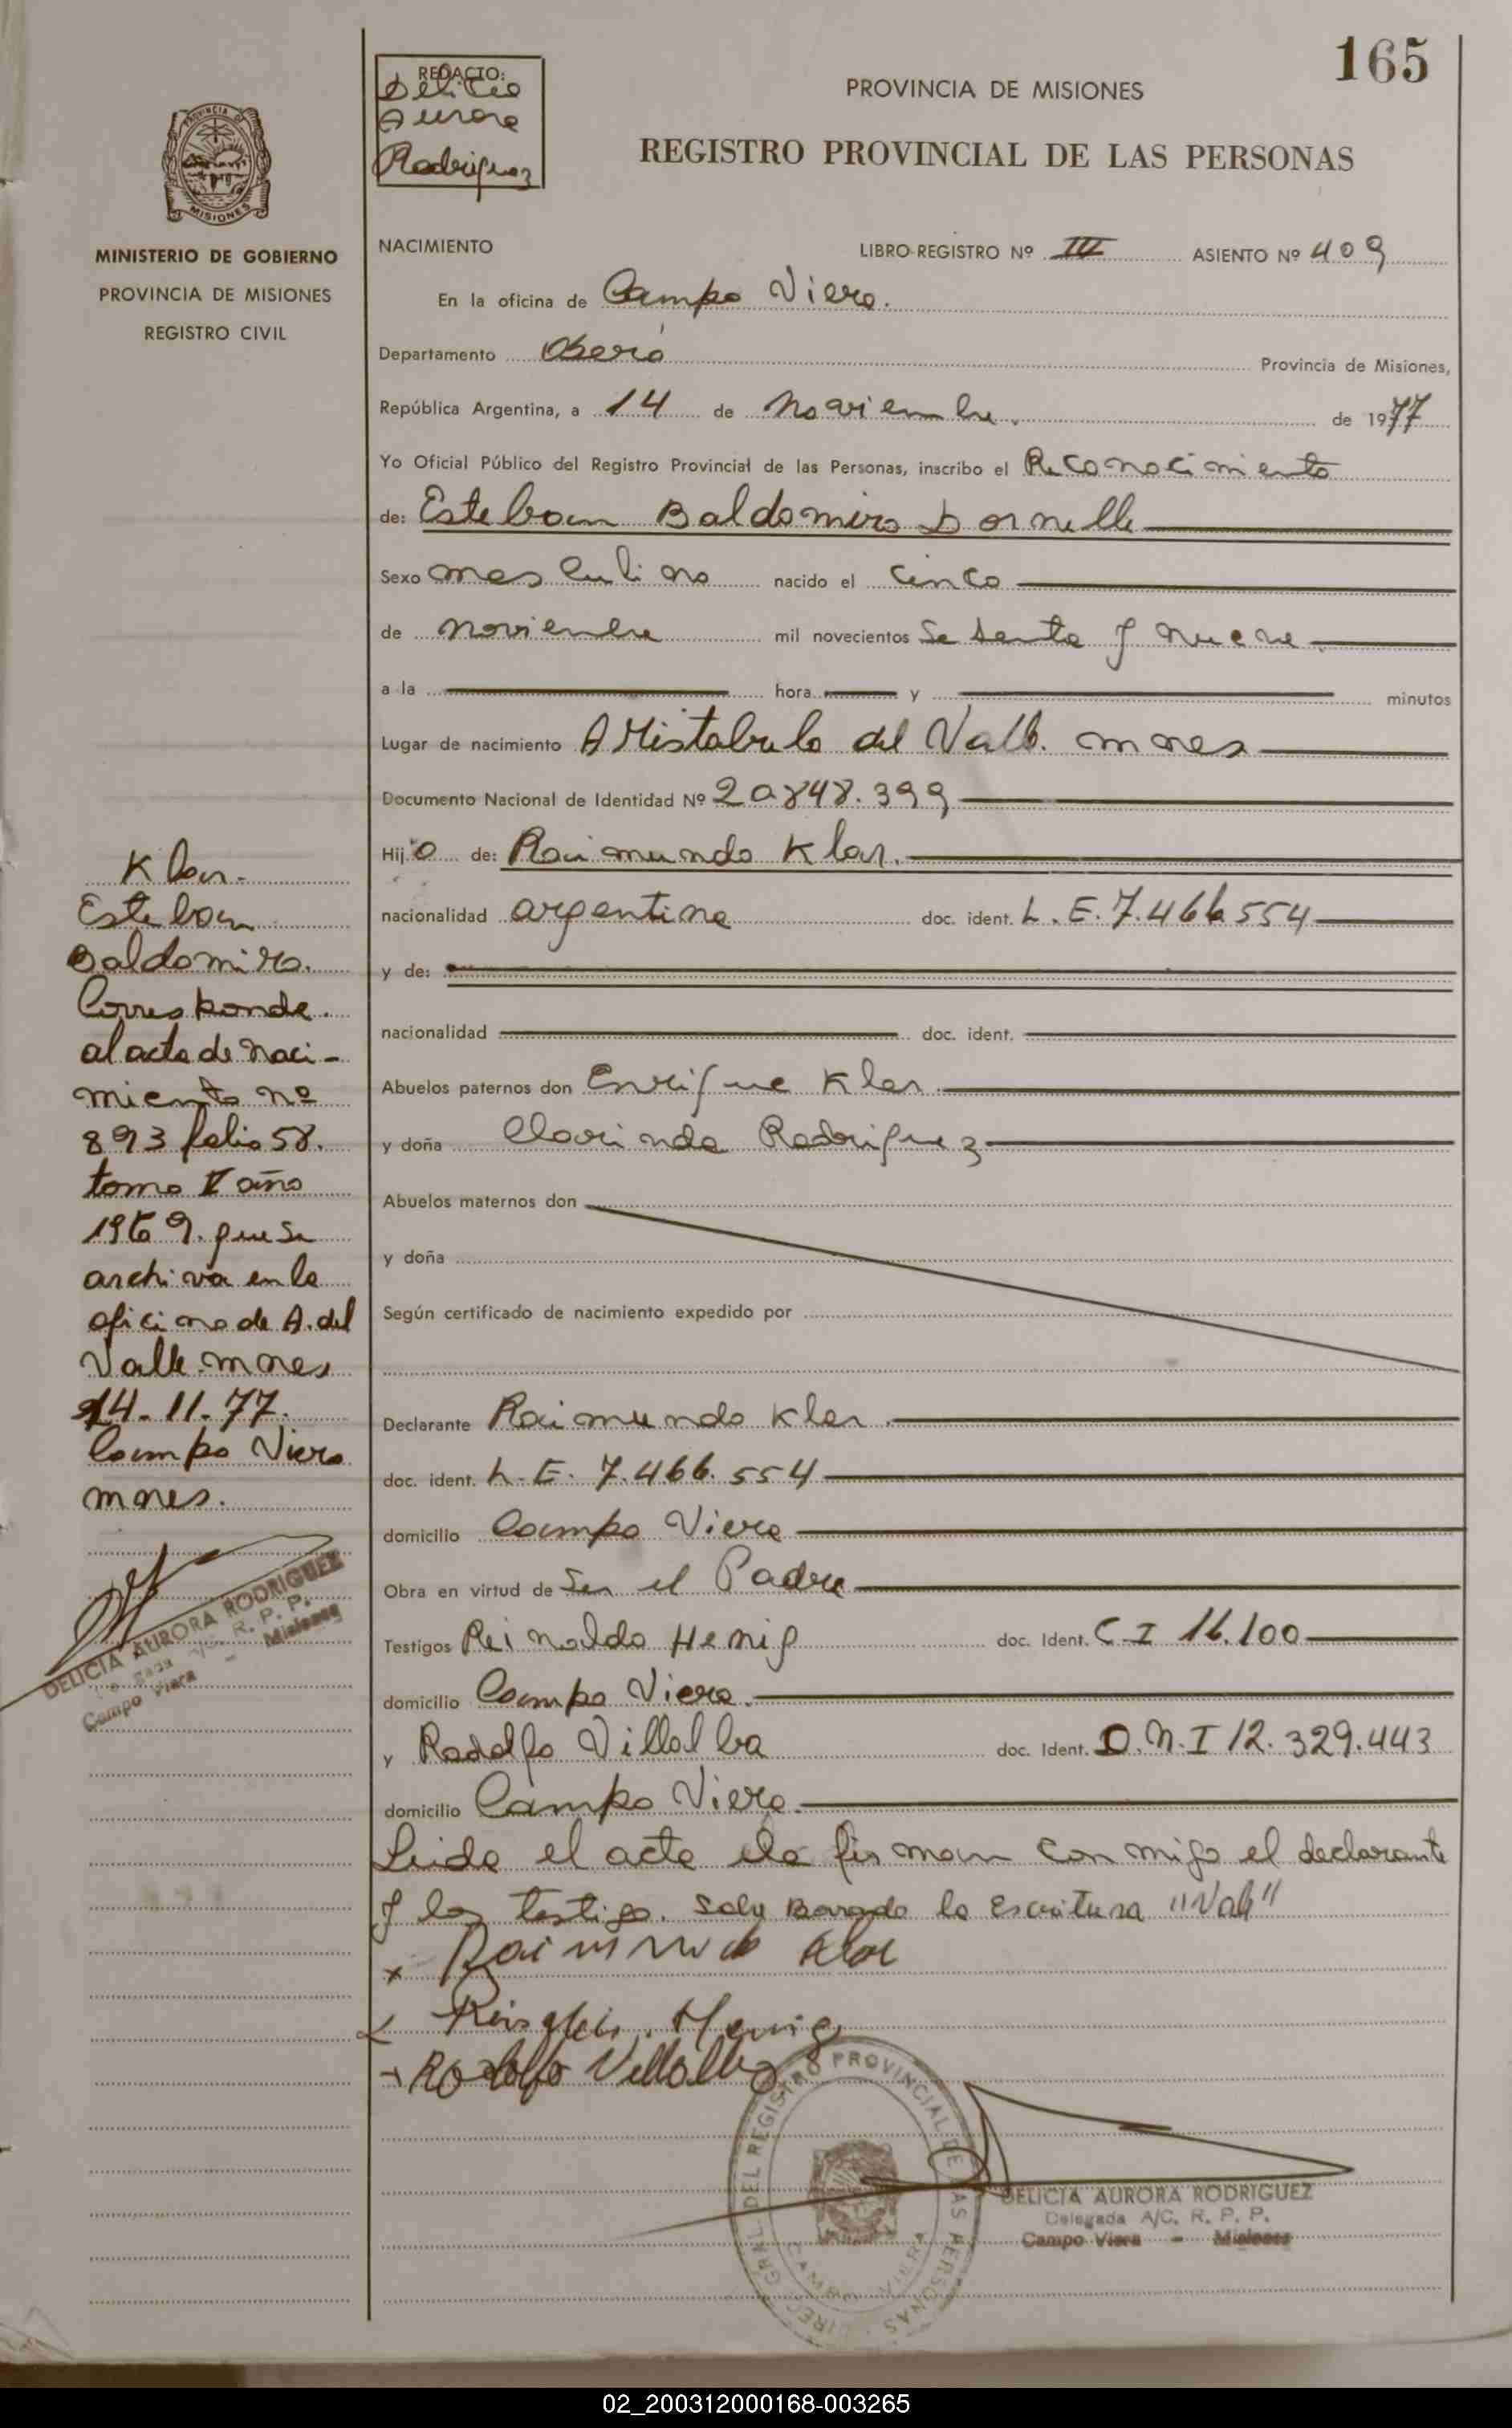 165
REDACTO:
Delicia
Aurora
Rodriguez
PROVINCIA DE MISIONES
REGISTRO PROVINCIAL DE LAS PERSONAS
PROVINCIA DE
MISIONES
MINISTERIO DE GOBIERNO
PROVINCIA DE MISIONES
REGISTRO CIVIL
NACIMIENTO LIBRO-REGISTRO Nº III ASIENTO Nº 409
En la oficina de Campo Viera.
Departamento Oberá Provincia de Misiones,
República Argentina, a 14 de Noviembre. de 1977
Yo Oficial Público del Registro Provincial de las Personas, inscribo el Reconocimiento
de: Esteban Baldomiro Dornelle
Sexo masculino nacido el cinco
de noviembre mil novecientos sesenta y nueve
a la hora y minutos
Lugar de nacimiento Aristobulo del Valle. mnes
Documento Nacional de Identidad Nº 20848.399
Hijo de: Raimundo Klar.
nacionalidad argentina doc. ident. L.E. 7.466.554
y de:
nacionalidad doc. ident.
Abuelos paternos don Enrique Klar.
y doña Clorinda Rodriguez
Abuelos maternos don
y doña
Según certificado de nacimiento expedido por
Declarante Raimundo Klar.
doc. ident. L.E. 7.466.554
domicilio Campo Viera
Obra en virtud de Ser el Padre
Testigos Reinaldo Henig doc. Ident. C.I 16.100
domicilio Campo Viera.
y Rodolfo Villalba doc. Ident. D.N.I 12.329.443
domicilio Campo Viera.
Leida el acta la firman conmigo el declarante
y los testigo. Sobre Borrado la escritura "Vale"
x Raimundo Klar
Reinaldo. Henig
Rodolfo Villalba
Klar.
Esteban
Baldomiro.
Corresponde.
al acta de naci-
miento nº
893 folio 58.
tomo V año
1969. que se
archiva en la
oficina de A. del
Valle. mnes
14-11-77.
Campo Viera
mnes.
DELICIA AURORA RODRIGUEZ
R. P. P.
Campo Viera - Misiones
REGISTRO PROVINCIAL DE LAS PERSONAS
DELICIA AURORA RODRIGUEZ
Delegada A/C. R. P. P.
Campo Viera - Misiones
02_200312000168-003265